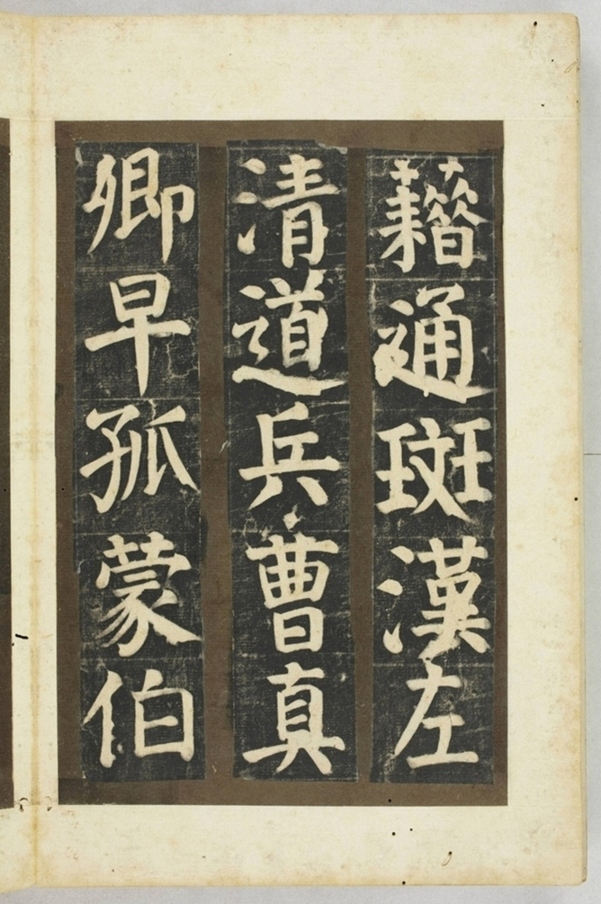 藉通班漢左
清道兵曹真
卿早孤蒙伯